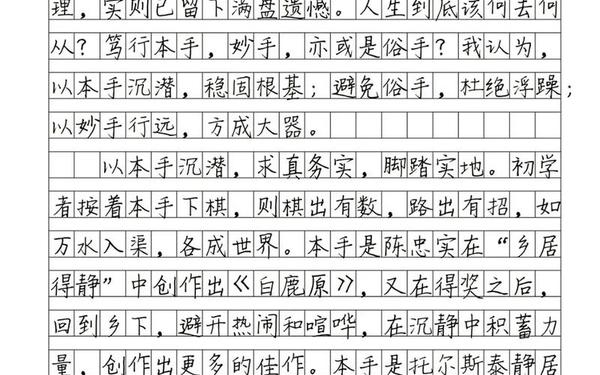 理，实则已留下满盘遗憾。人生到底该何去何
从？笃行本手，妙手，亦或是俗手？我认为，
以本手沉潜，稳固根基；避免俗手，杜绝浮躁；
以妙手行远，方成大器。
以本手沉潜，求真务实，脚踏实地。初学
者按着本手下棋，则棋出有数，路出有招，如
万水入渠，各成世界。本手是陈忠实在“乡居
得静”中创作出《白鹿原》，又在得奖之后，
回到乡下，避开热闹和喧哗，在沉静中积蓄力
量，创作出更多的佳作。本手是托尔斯泰静居